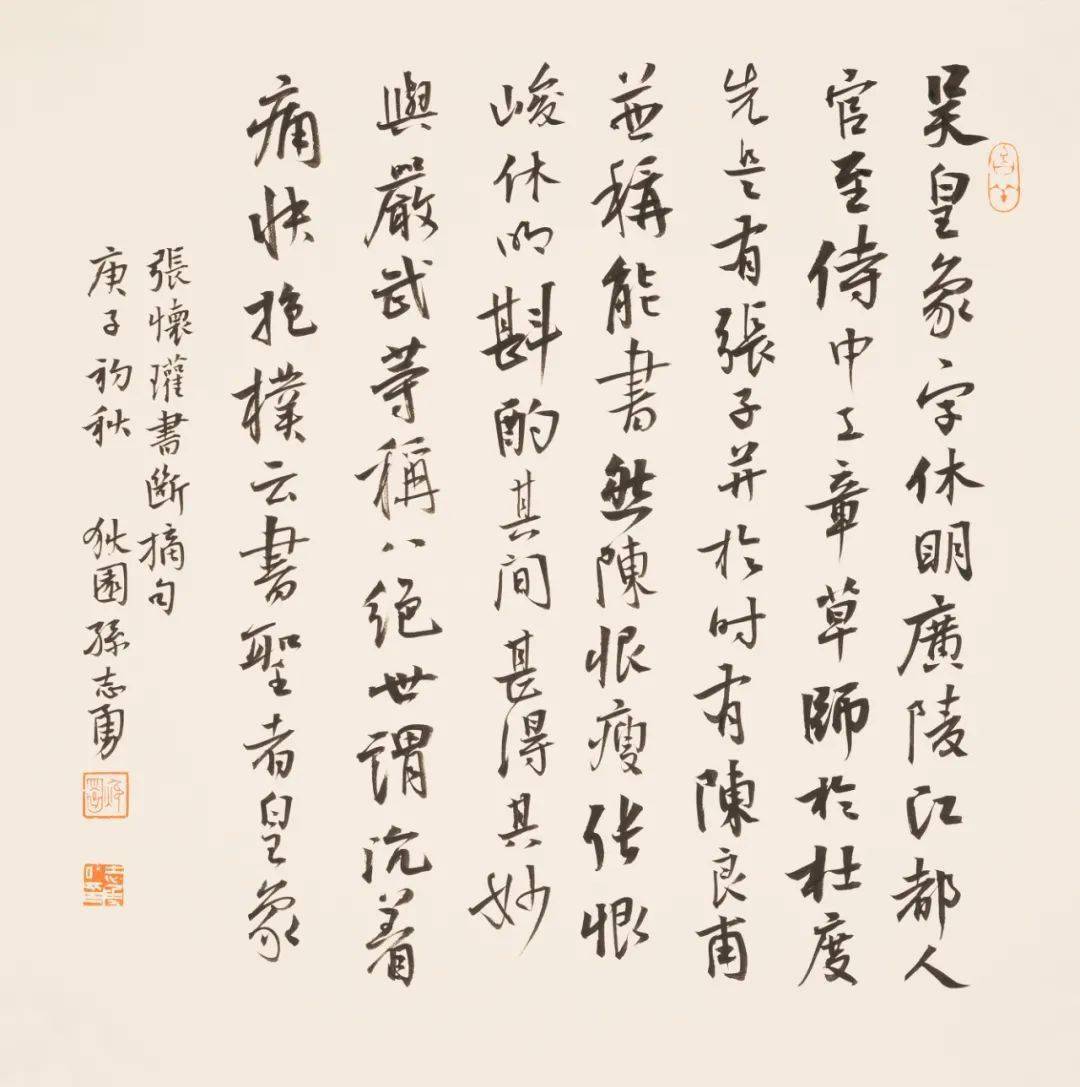 吴皇象字休明廣陵江都人
官至侍中工章草師於杜度
先是有張子并於时有陳良甫
並稱能書然陳恨瘦张恨
峻休明斟酌其间甚得其妙
與嚴武等稱八绝世謂沉着
痛快抱樸云書聖者皇象
張懷瓘書斷摘句
庚子初秋 狄園孫志勇